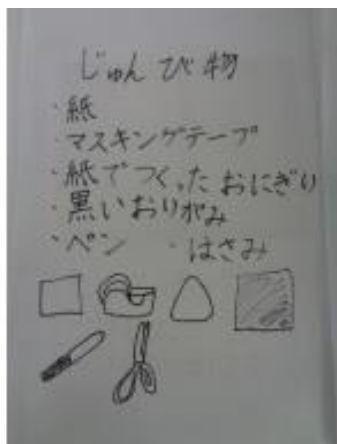 じゅんび物
・紙
・マスキングテープ
・紙でつくったおにぎり
・黒いおりがみ
・ペン ・はさみ